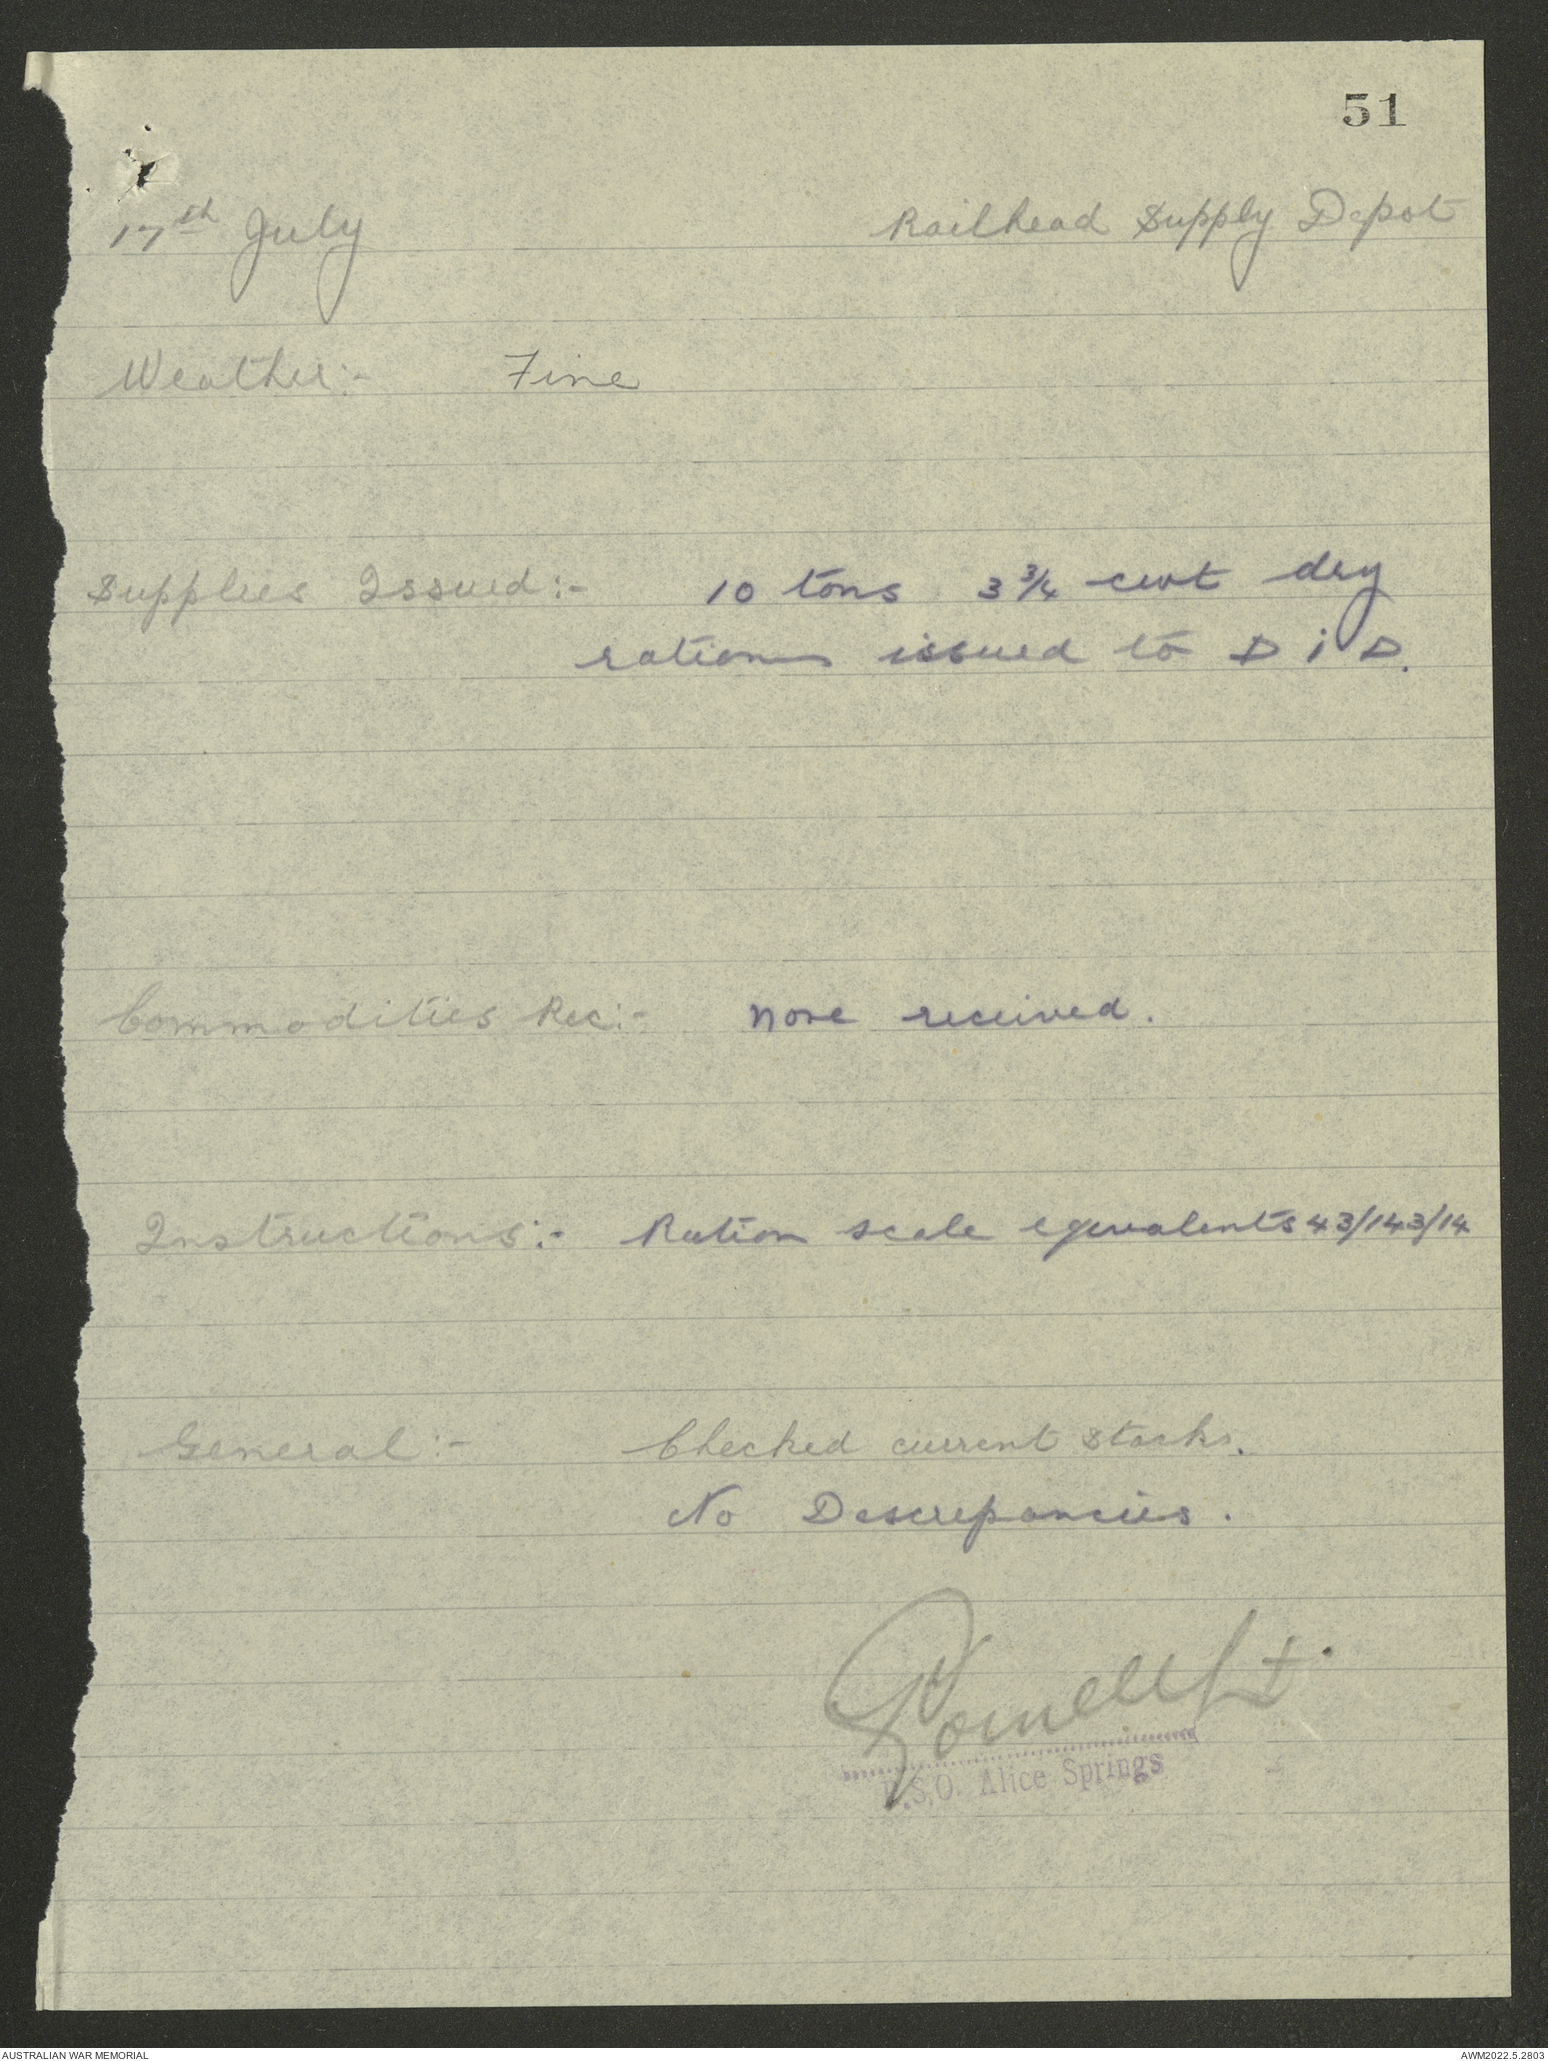 51
17th July Railhead Supply Depot
Weather:- Fine
Supplies Issued:- 10 tons 3 3/4 cwt dry
rations issued to D I D.
Commodities Rec:- None received.
Instructions:- Ration scale equivalents 43/143/14
General:- Checked current stocks.
No Descrepancies.
Lt.
S.O. Alice Springs
AUSTRALIAN WAR MEMORIAL
AWM2022.5.2803